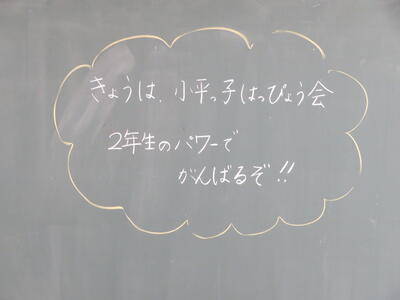 きょうは、小平っ子はっぴょう会
2年生のパワーで
がんばるぞ!!